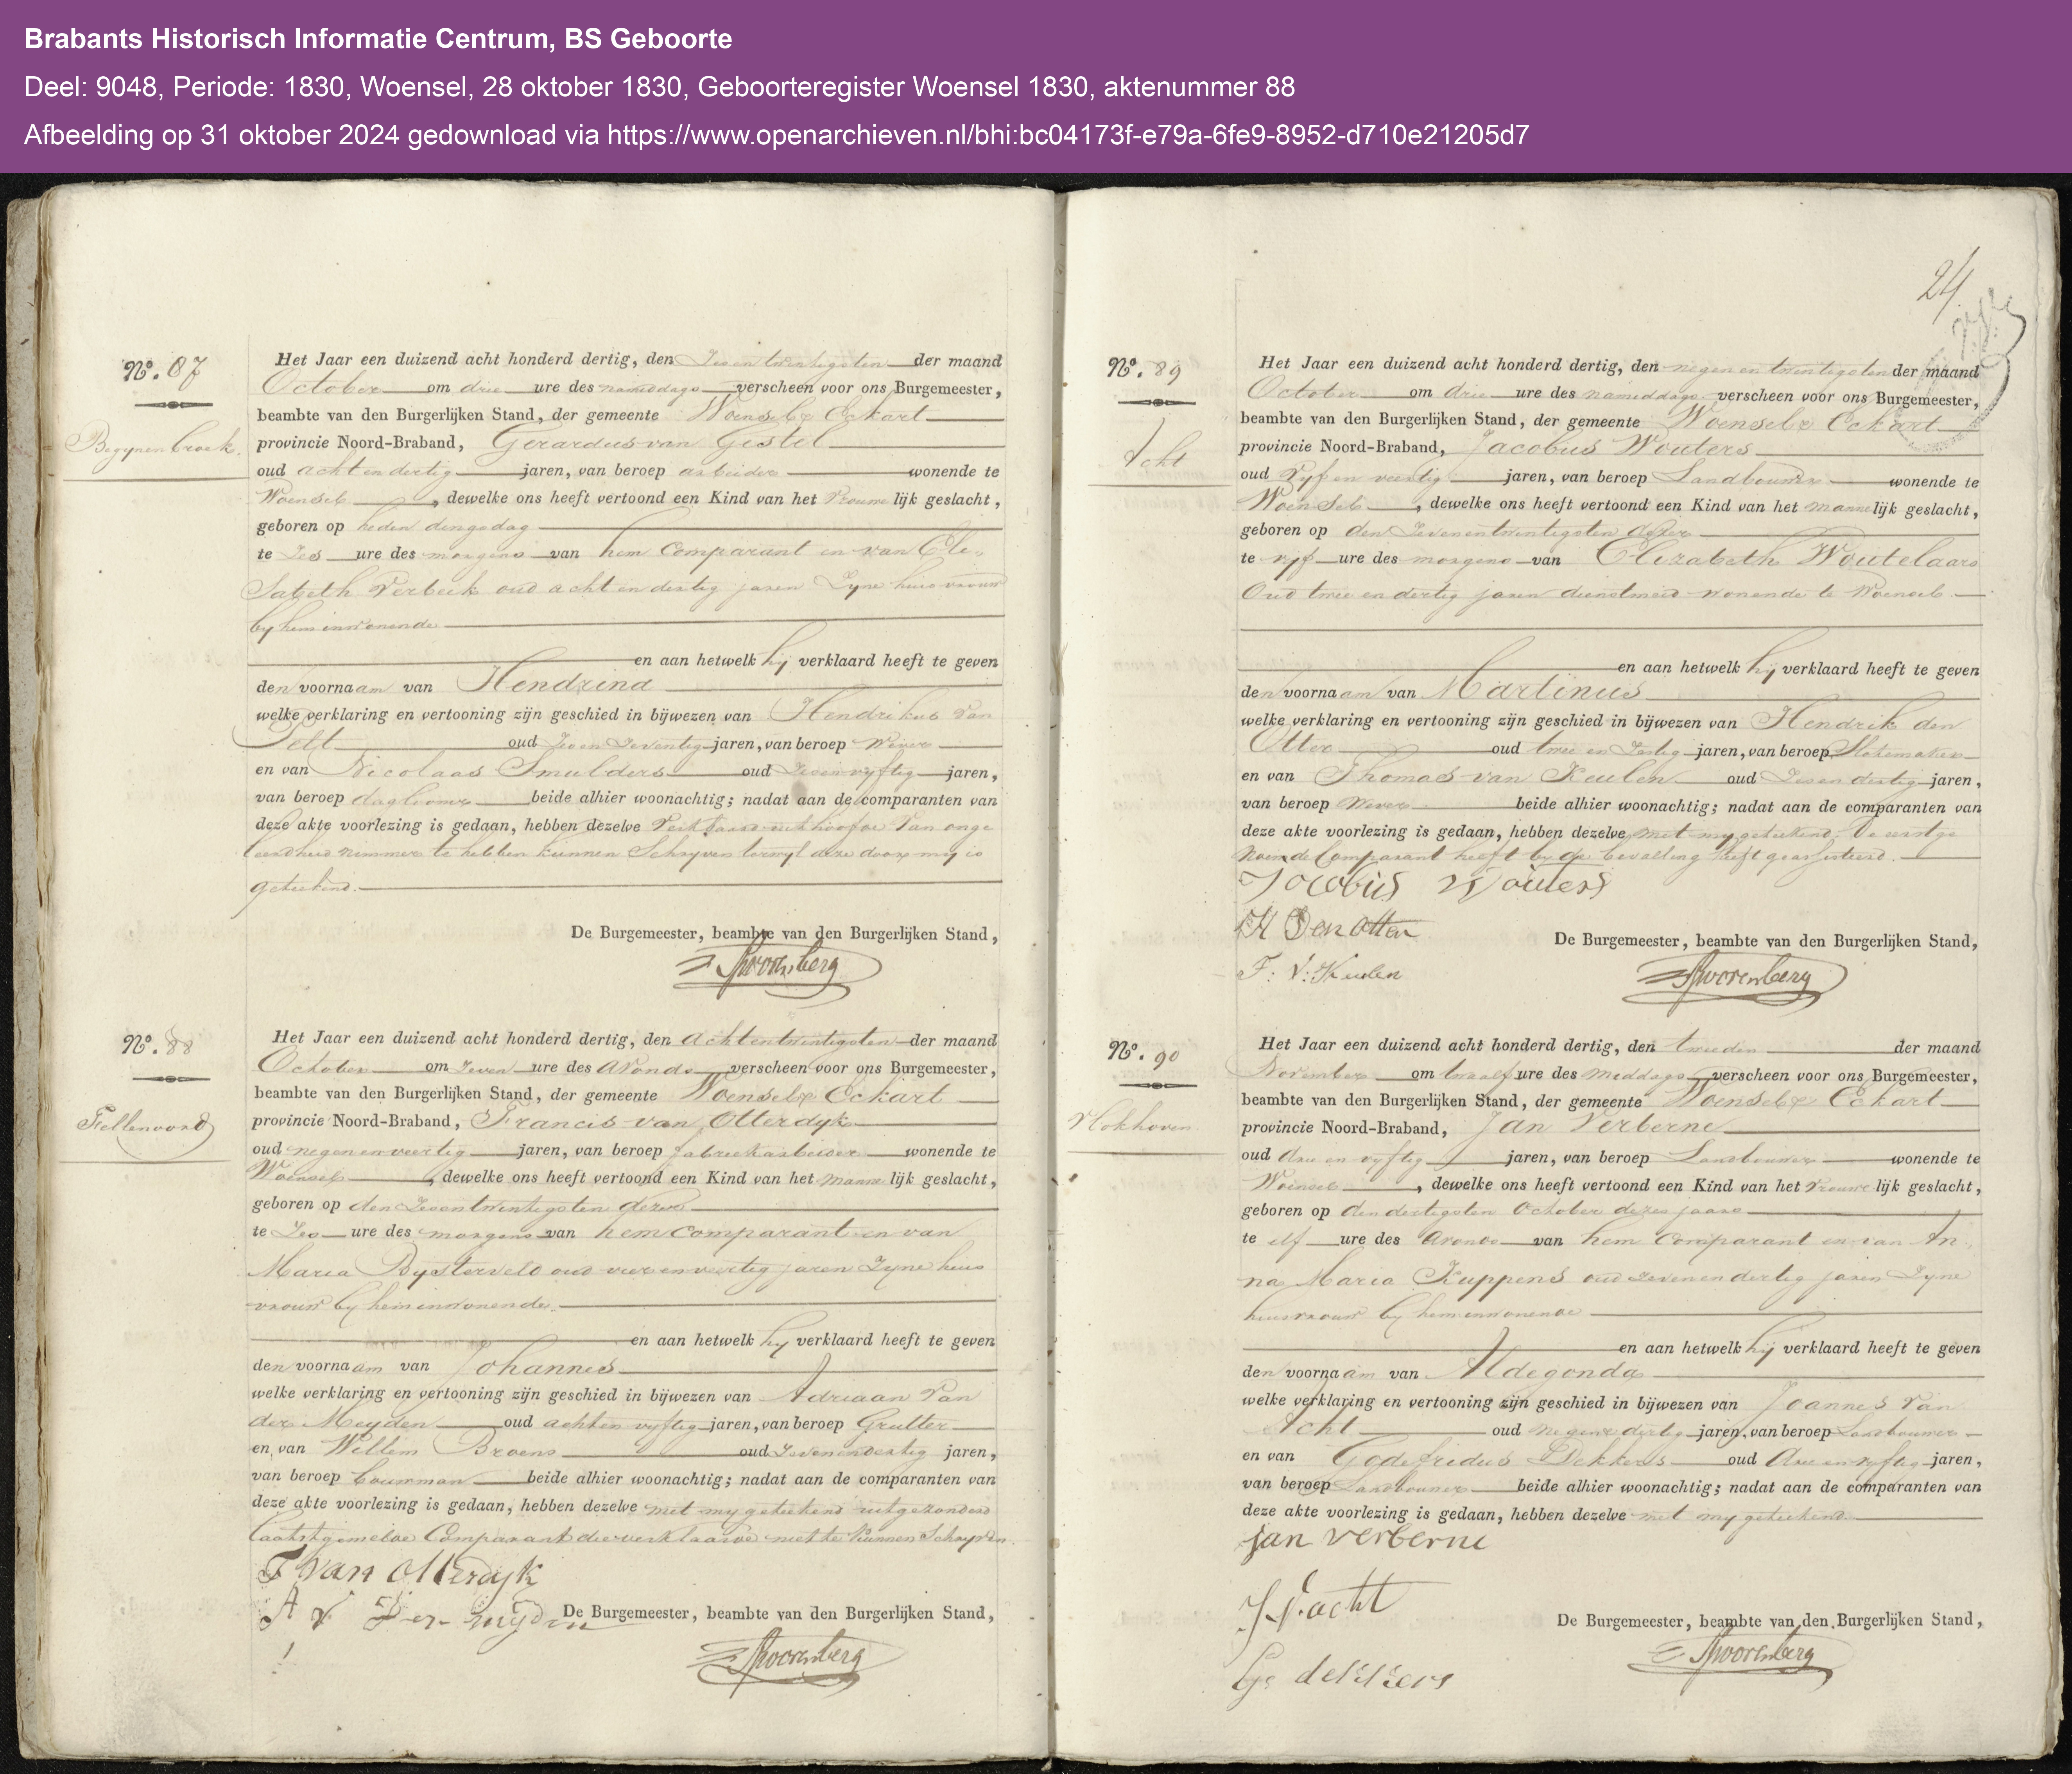 Brabants Historisch Informatie Centrum, BS Geboorte
Deel: 9048, Periode: 1830, Woensel, 28 oktober 1830, Geboorteregister Woensel 1830, aktenummer 88
Afbeelding op 31 oktober 2024 gedownload via https://www.openarchieven.nl/bhi:bc04173f-e79a-6fe9-8952-d710e21205d7
No. 87
Begynenbroek
Het Jaar een duizend acht honderd dertig, den Zesentwintigsten der maand
October om drie ure des nameddags verscheen voor ons Burgemeester,
beambte van den Burgerlijken Stand, der gemeente Woensel & Eckart
provincie Noord-Braband, Gerardus van Gestel
oud acht en dertig jaren, van beroep arbeider wonende te
Woensel, dewelke ons heeft vertoond een Kind van het vrouwe lijk geslacht,
geboren op heden dingsdag
te Zes ure des morgens van hem Comparant en van Eli-
sabeth Verbeek oud acht en dertig jaren Zyne huisvrouw
by hem inwonende
en aan hetwelk hy verklaard heeft te geven
den voornaam van Hendrina
welke verklaring en vertooning zijn geschied in bijwezen van Hendrikus van
Pelt oud Zes en Zeventig jaren, van beroep Wever
en van Nicolaas Smulders oud Zesenvyftig jaren,
van beroep daglooner beide alhier woonachtig; nadat aan de comparanten van
deze akte voorlezing is gedaan, hebben dezelve verklaard uit hoofde van onge
leerdheid nimmer te hebben kunnen Schryven terwyl deze door my is
geteekend.
De Burgemeester, beambte van den Burgerlijken Stand,
Spoorenberg
No. 88
Fellenoord
Het Jaar een duizend acht honderd dertig, den achtentwintigsten der maand
October om Zeven ure des avonds verscheen voor ons Burgemeester,
beambte van den Burgerlijken Stand, der gemeente Woensel & Eckart
provincie Noord-Braband, Francis van Otterdyk
oud negenenveertig jaren, van beroep fabriekarbeider wonende te
Woensel, dewelke ons heeft vertoond een Kind van het manne lijk geslacht,
geboren op den Zesentwintigsten dezer
te Zes ure des morgens van hem comparant en van
Maria Bysterveld oud vier en veertig jaren Zyne huis
vrouw by hem inwonende.
en aan hetwelk hy verklaard heeft te geven
den voornaam van Johannes
welke verklaring en vertooning zijn geschied in bijwezen van Adriaan van
der Meyden oud achten vyftig jaren, van beroep Grutter
en van Willem Broens oud Zevenendertig jaren,
van beroep bouwman beide alhier woonachtig; nadat aan de comparanten van
deze akte voorlezing is gedaan, hebben dezelve met my geteekend uitgezonderd
laatstgemelde Comparant die verklaarde niet te kunnen Schryven.
F van Otterdyk
A v Der myden
De Burgemeester, beambte van den Burgerlijken Stand,
Spoorenberg
24
No. 89
Acht
Het Jaar een duizend acht honderd dertig, den negenentwintigsten der maand
October om drie ure des nameddags verscheen voor ons Burgemeester,
beambte van den Burgerlijken Stand, der gemeente Woensel & Eckart
provincie Noord-Braband, Jacobus Wouters
oud vyf en veertig jaren, van beroep Landbouwer wonende te
Woensel, dewelke ons heeft vertoond een Kind van het manne lijk geslacht,
geboren op den Zevenentwintigsten dezer
te vyf ure des morgens van Elizabeth Woutelaars
oud twee en dertig jaren dienstmeid wonende te Woensel.
en aan hetwelk hy verklaard heeft te geven
den voornaam van Martinus
welke verklaring en vertooning zijn geschied in bijwezen van Hendrik den
Otter oud twee en Zestig jaren, van beroep Slotemaker
en van Thomas van Keulen oud Zesendertig jaren,
van beroep Wever beide alhier woonachtig; nadat aan de comparanten van
deze akte voorlezing is gedaan, hebben dezelve met my geteekend. De eerstge
noemde Comparant heeft by de bevalling heeft geassisteerd.
Jocobus Wouters
H Den Otter
F: V: Keulen
De Burgemeester, beambte van den Burgerlijken Stand,
Spoorenberg
No. 90
Hokhoven
Het Jaar een duizend acht honderd dertig, den tweeden der maand
November om twaalf ure des Meddags verscheen voor ons Burgemeester,
beambte van den Burgerlijken Stand, der gemeente Woensel & Eckart
provincie Noord-Braband, Jan Verberne
oud drie en vyftig jaren, van beroep Landbouwer wonende te
Woensel, dewelke ons heeft vertoond een Kind van het vrouwe lijk geslacht,
geboren op den dertigsten October dezes jaars
te elf ure des avonds van hem Comparant en van An-
na Maria Kuppens oud Zevenendertig jaren Zyne
huisvrouw by hem inwonende
en aan hetwelk hij verklaard heeft te geven
den voornaam van Aldegonda
welke verklaring en vertooning zijn geschied in bijwezen van Joannes van
Acht oud negenendertig jaren, van beroep Landbouwer
en van Godefridus Dekkers oud drie en vyftig jaren,
van beroep Landbouwer beide alhier woonachtig; nadat aan de comparanten van
deze akte voorlezing is gedaan, hebben dezelve met my geteekend
jan verberne
J V: acht
De Burgemeester, beambte van den Burgerlijken Stand,
Spoorenberg
dekkers